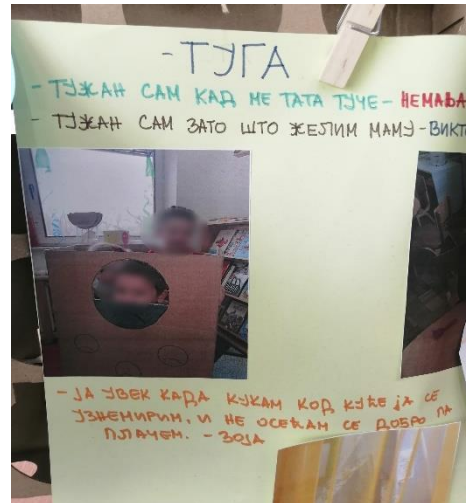 -ТУГА
- ТУЖАН САМ КАД МЕ ТАТА ТУЧЕ - НЕМАЊА
- ТУЖАН САМ ЗАТО ШТО ЖЕЛИМ МАМУ - ВИКТ
- ЈА УВЕК КАДА КУКАМ КОД КУЋЕ ЈА СЕ
УЗНЕМИРИМ, И НЕ ОСЕЋАМ СЕ ДОБРО ПА
ПЛАЧЕМ. - ЗОЈА